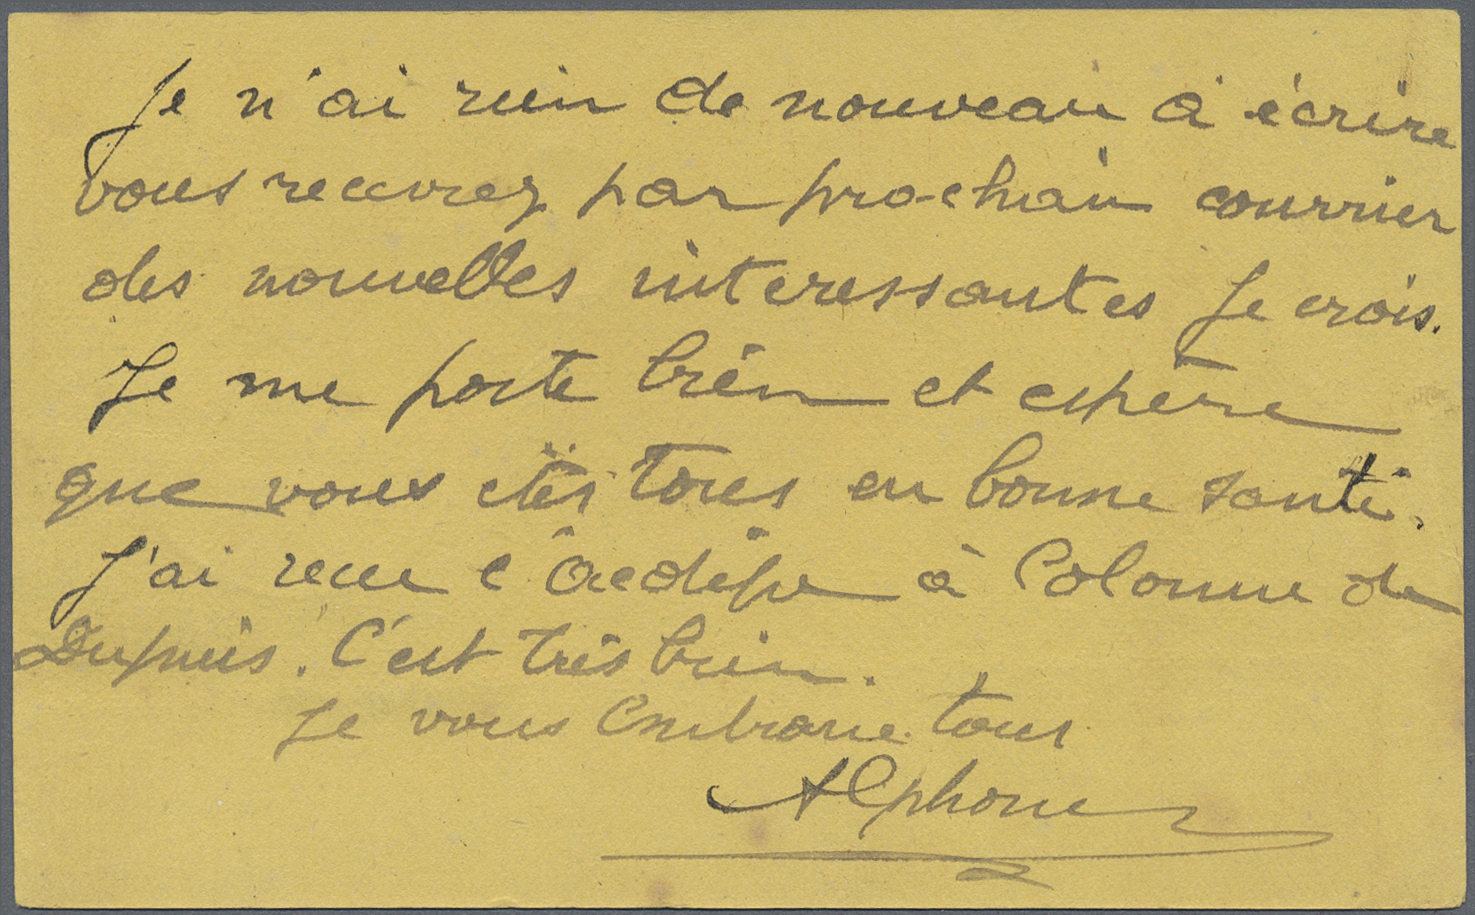 Je n'ai rien de nouveau à écrire
vous recevrez par prochain courrier
des nouvelles interessantes je crois.
Je me porte bien et espère
que vous êtes tous en bonne santé.
J'ai reçu l'Oedipe à Colonne de
Dupuis. C'est très bien.
Je vous embrasse tous
Alphonse